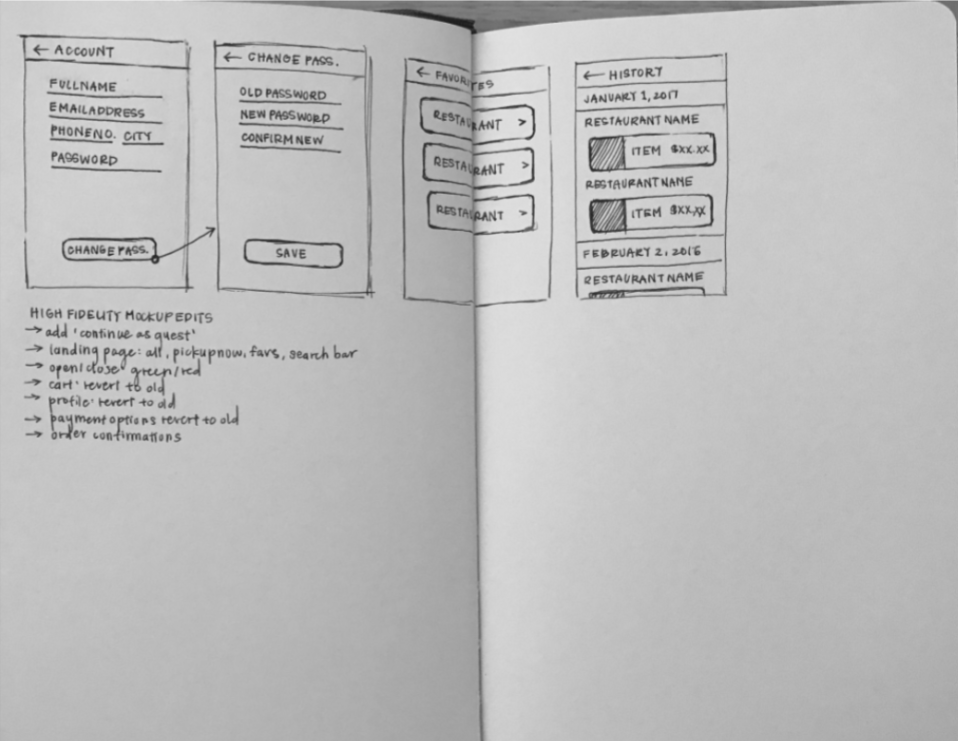 ← ACCOUNT
FULLNAME
EMAILADDRESS
PHONENO. CITY
PASSWORD
CHANGE PASS.
← CHANGE PASS.
OLD PASSWORD
NEW PASSWORD
CONFIRM NEW
SAVE
← FAVORITES
RESTAURANT >
RESTAURANT >
RESTAURANT >
← HISTORY
JANUARY 1, 2017
RESTAURANT NAME
ITEM $XX.XX
RESTAURANT NAME
ITEM $XX.XX
FEBRUARY 2, 2016
RESTAURANT NAME
HIGH FIDELITY MOCKUP EDITS
→ add 'continue as guest'
→ landing page: all, pickup now, favs, search bar
→ open/close: green/red
→ cart: revert to old
→ profile: revert to old
→ payment options revert to old
→ order confirmations